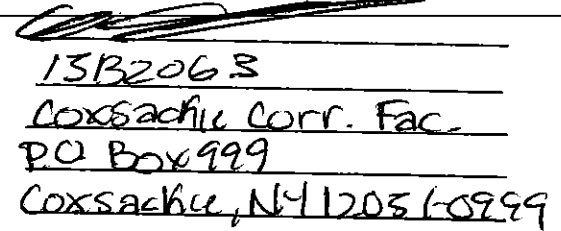 15B2063
Coxsackie Corr. Fac.
P.O Box 999
Coxsackie, NY 12051-0999